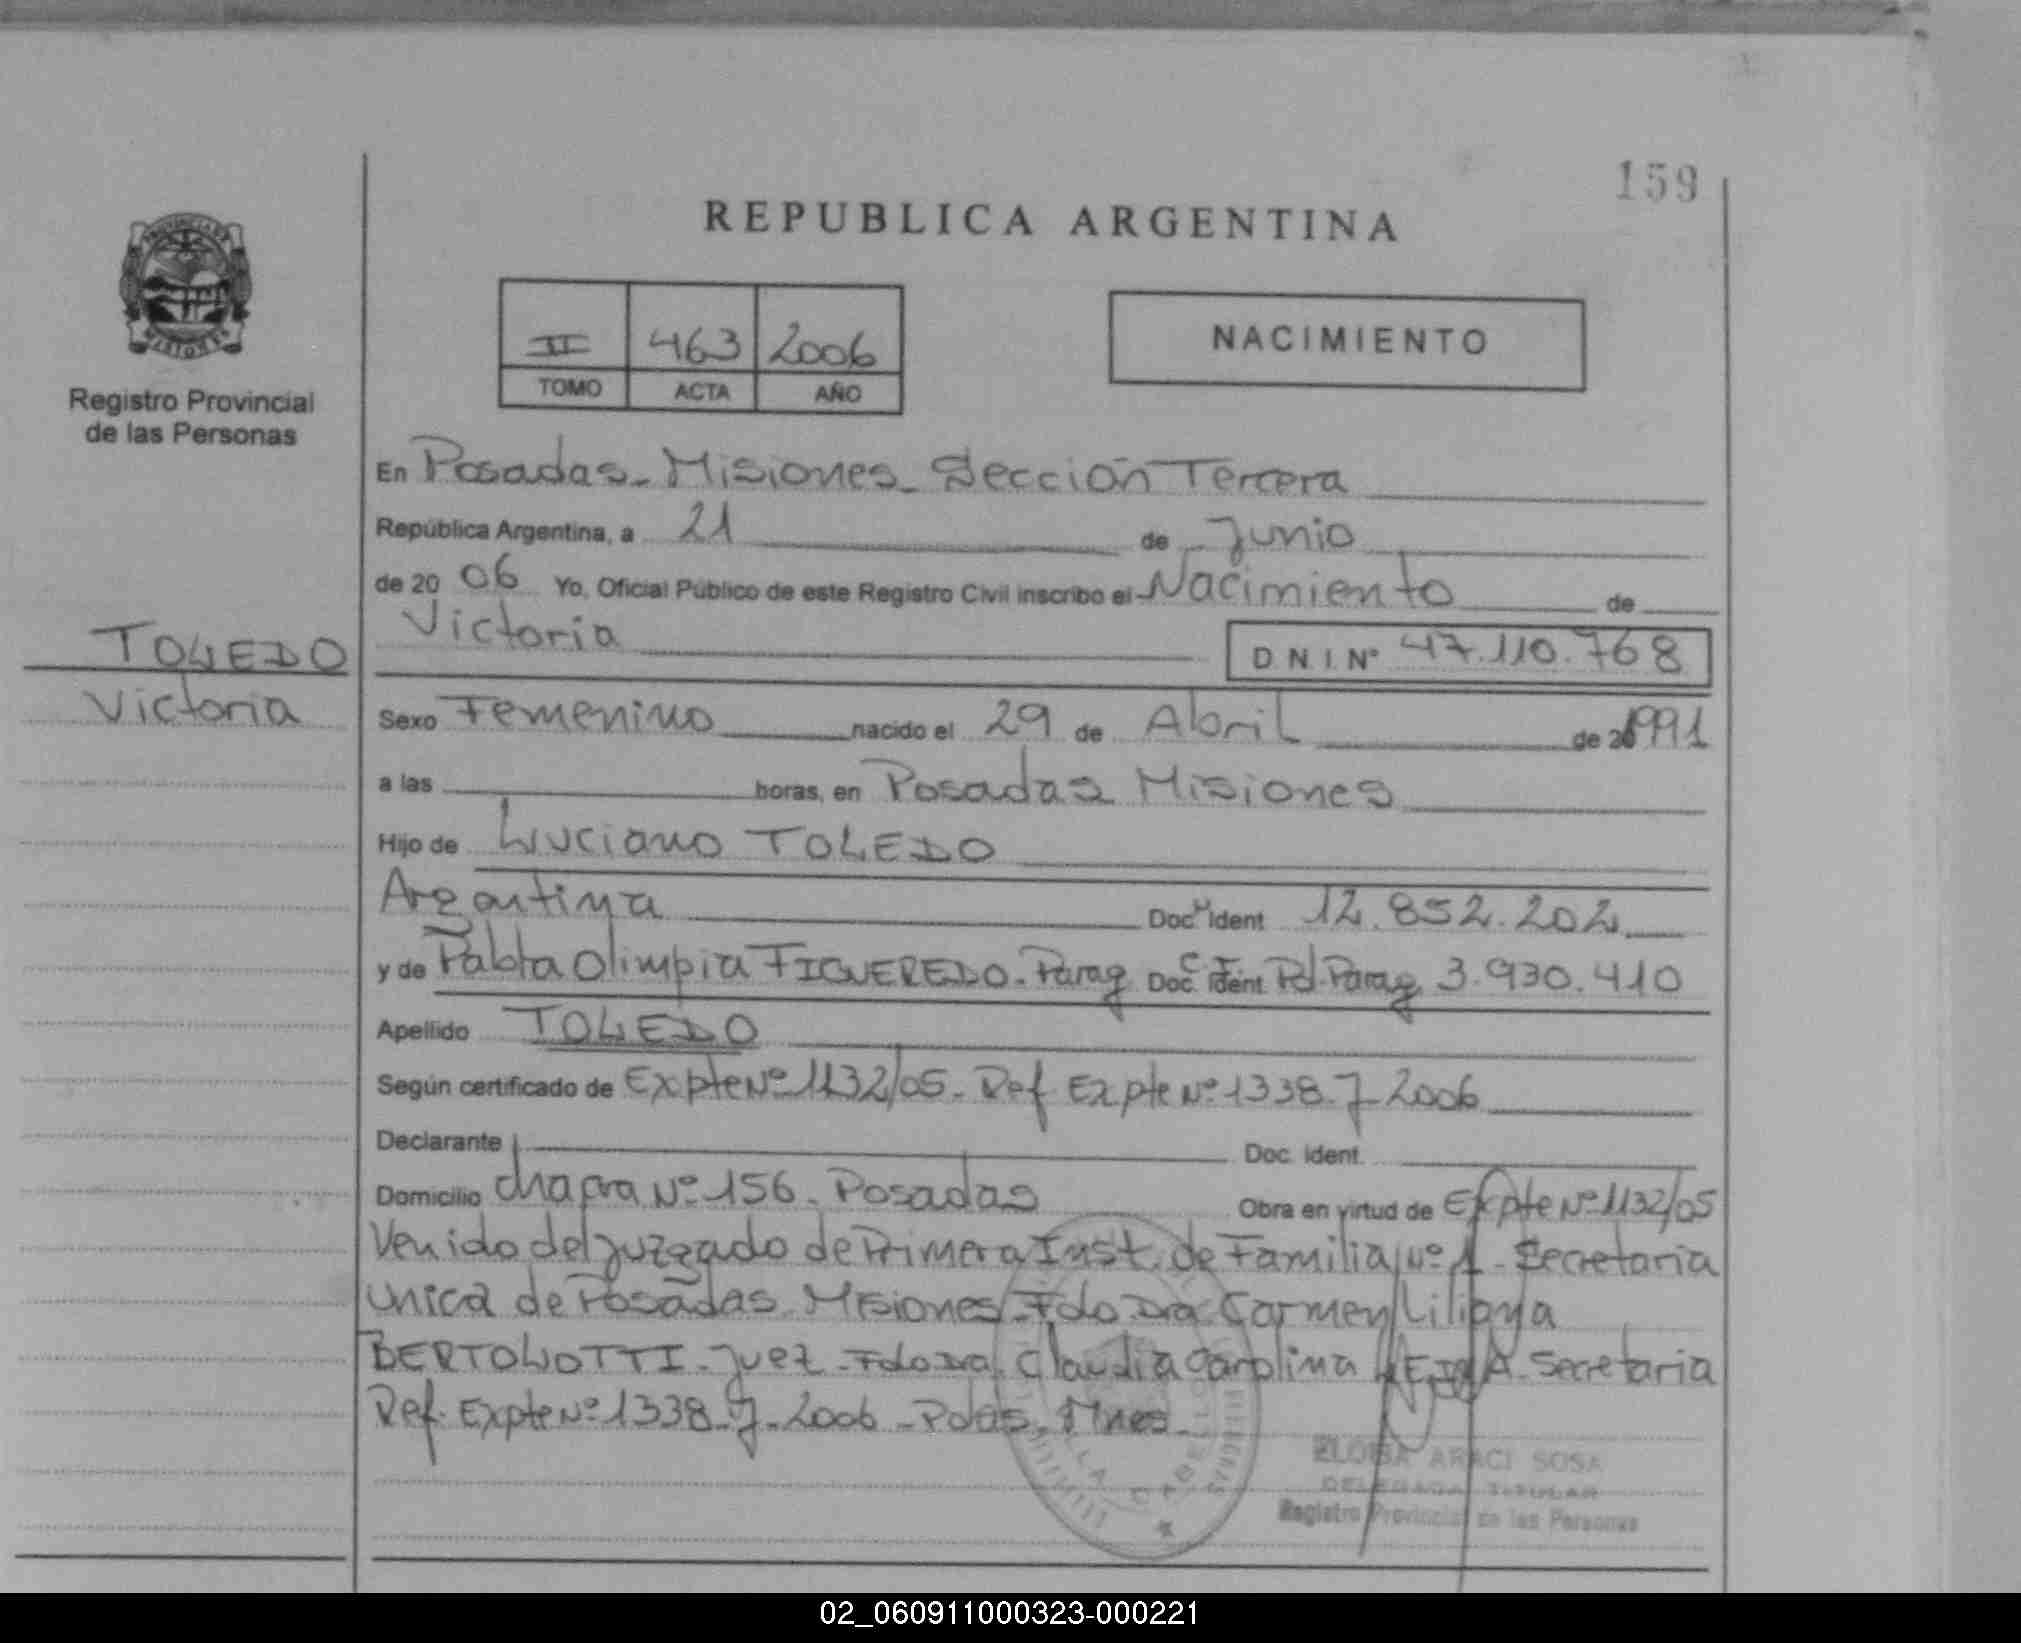 159
REPUBLICA ARGENTINA
PROVINCIA DE
MISIONES
Registro Provincial
de las Personas
II 463 2006
TOMO ACTA AÑO
NACIMIENTO
En Posadas - Misiones - Sección Tercera
República Argentina, a 21 de Junio
de 20 06 Yo, Oficial Público de este Registro Civil inscribo el Nacimiento de
Victoria D.N.I. Nº 47.110.768
TOLEDO
Victoria
Sexo Femenino nacido el 29 de Abril de 1991
a las horas, en Posadas Misiones
Hijo de Luciano TOLEDO
Argentina Doc. Ident 12.852.202
y de Pabla Olimpia FIGUEREDO - Parag Doc. Ident Pol. Parag 3.930.410
Apellido TOLEDO
Según certificado de Expte Nº 1132/05 - Ref Expte Nº 1338-J-2006
Declarante Doc. Ident.
Domicilio chacra Nº 156 - Posadas Obra en virtud de Expte Nº 1132/05
Venido del Juzgado de Primera Inst. de Familia Nº 1 - Secretaria
Unica de Posadas Misiones - Fdo Dra Carmen Liliana
BERTOLOTTI - Juez - Fdo Dra. Claudia Carolina - Secretaria
Ref. Expte Nº 1338-J-2006 - Pdas, Mnes -
ELOISA ARACI SOSA
DELEGADA TITULAR
Registro Provincial de las Personas
02_060911000323-000221